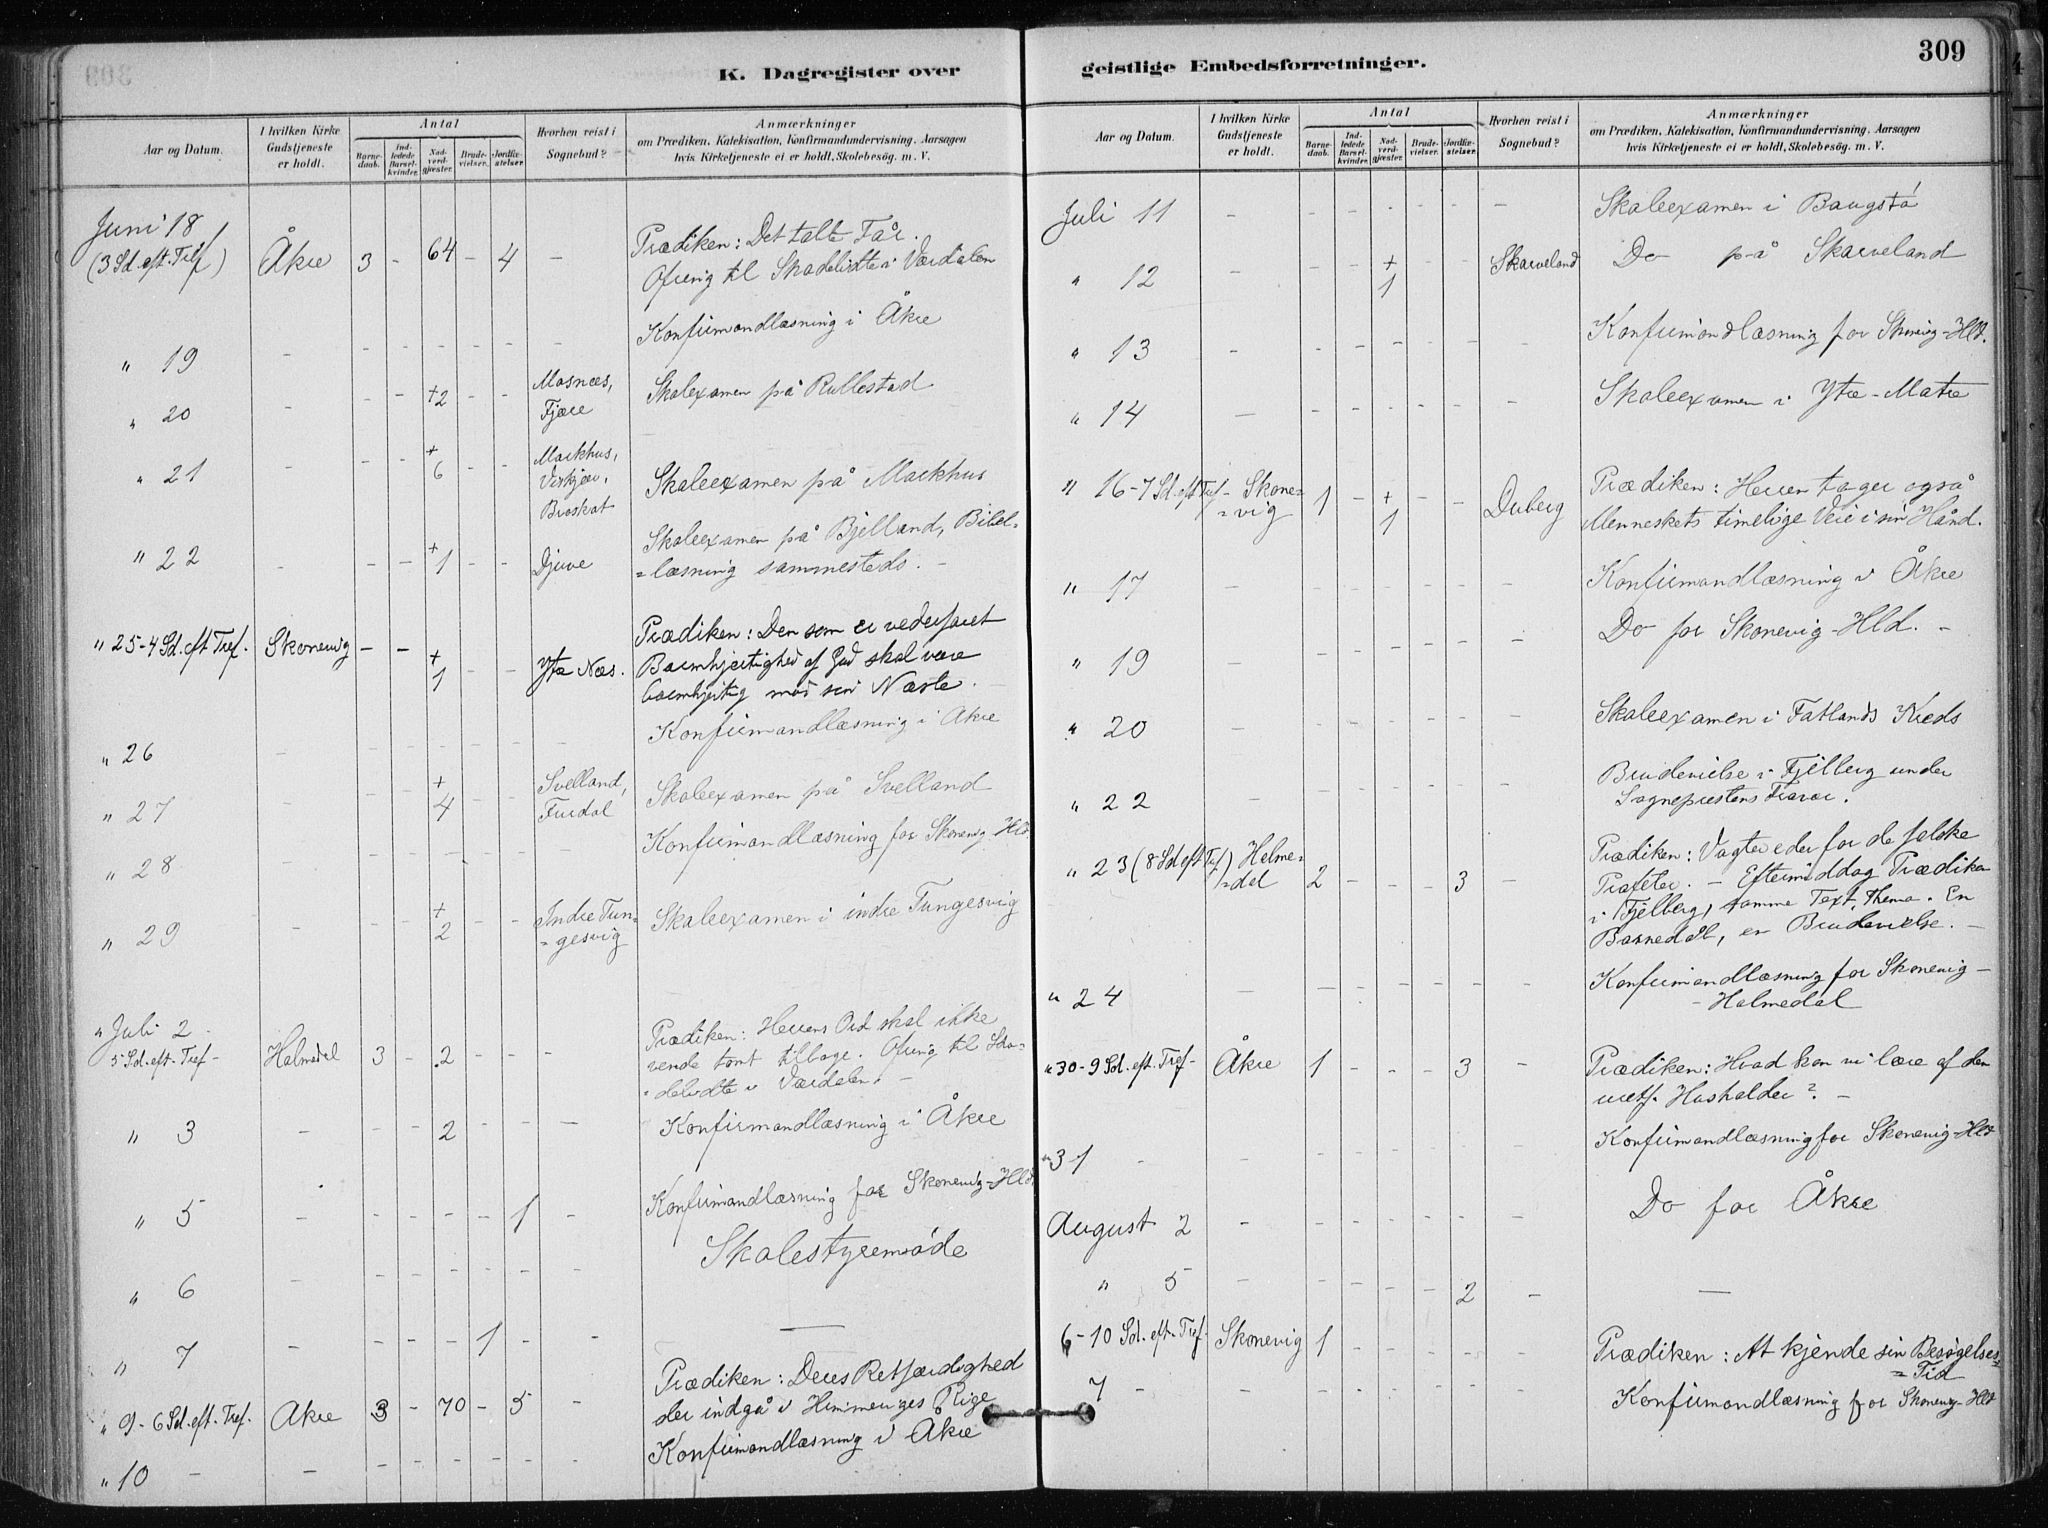 309
K. Dagregister over
geistlige Embedsforretninger.
Aar og Datum.
I hvilken Kirke Gudstjeneste er holdt.
Antal
Barnedaab.
Indledede Barselkvinder.
Nadverdgjæster.
Brudevielser.
Jordfæstelser.
Hvorhen reist i Sognebud?
Anmærkninger
om Prædiken, Katekisation, Konfirmandundervisning. Aarsagen
hvis Kirketjeneste ei er holdt, Skolebesøg. m. V.
Juni 18
(3 Sd. eft. Tref) Åkre 3 - 64 - 4 - Prædiken: Det talte Får.
Ofring til Skadelidte i Værdalen
" 19 - - - - - - - Konfirmandlæsning i Åkre
" 20 - - - +2 - - Mosnæs, Fjære Skoleexamen på Rullestad
" 21 - - - + 6 - - Markhus,
Broskot Skoleexamen på Markhus
" 22 - - - + 1 - - Djuve Skoleexamen på Bjelland, Bibel=
=læsning sammesteds. -
" 25 - 4 Sd. eft Tref. Skonevig - - + 1 - - Ytre Næs. Prædiken: Den som er vederfaret
Barmhjertighed af Gud skal være
barmhjertig mod sin Næste. -
" 26 - - - - - - - Konfirmandlæsning i Åkre
" 27 - - - + 4 - - Svelland, Furdal Skoleexamen på Svelland
" 28 - - - - - - - Konfirmandlæsning for Skonevig Hld.
" 29 - - - + 2 - - Indre Tun=
=gesvig Skoleexamen i indre Tungesvig
" Juli 2
5 Sd. eft. Tref - Holmedal 3 - 2 - - - Prædiken: Herrens Ord skal ikke
vende tomt tilbage. Ofring til Ska=
=delidte i Værdalen. -
" 3 - - - 2 - - - Konfirmandlæsning i Åkre
" 5 - - - - - 1 - Konfirmandlæsning for Skonevig-Hld.
" 6 - - - - - - - Skolestyremøde
" 7 - - - - 1 - -
" 9 - 6 Sd. eft. Tref. Åkre 3 - 70 - 5 - Prædiken: Deres Retfærdighed
der indgå i Himmeriges Rige
" 10 - - Konfirmandlæsning i Åkre
Aar og Datum.
I hvilken Kirke Gudstjeneste er holdt.
Antal
Barnedaab.
Indledede Barselkvinder.
Nadverdgjæster.
Brudevielser.
Jordfæstelser.
Hvorhen reist i Sognebud?
Anmærkninger
om Prædiken, Katekisation, Konfirmandundervisning. Aarsagen
hvis Kirketjeneste ei er holdt, Skolebesøg. m. V.
Juli 11 - - - - - - - Skoleexamen i Baugstø
" 12 - - - + 1 - - Skarveland Do på Skarveland
" 13 - - - - - - - Konfirmandlæsning for Skonevig-Hld.
" 14 - - - - - - - Skoleexamen i Ytre-Matre
" 16 - 7 Sd. eft Tref - Skone=
=vig 1 - + 1 - - Duberg Prædiken: Herren tager også
Menneskets timelige Veie i sin Hånd.
" 17 - - - - - - - Konfirmandlæsning i Åkre
" 19 - - - - - - - Do for Skonevig-Hld. -
" 20 - - - - - - - Skoleexamen i Fatlands Kreds
" 22 - - - - - - - Brudevielse i Fjelberg under
Sogneprestens Fravær.
" 23 (8 Sd. eft Tref) Holme=
=dal 2 - - - 3 - Prædiken: Vogter eder for de falske
Profeter. - Eftermiddag Prædiken
i Fjelberg, samme Text, Thema. En
Barnedåb, en Brudevielse. -
" 24 - - - - - - - Konfirmandlæsning for Skonevig-
- Holmedal
" 30 - 9 Sd. eft. Tref - Åkre 1 - - - 3 - Prædiken: Hvad kan vi lære af den
uretf. Husholder? -
" 31 - - - - - - - Konfirmandlæsning for Skonevig-Hld
August 2 - - - - - - - Do for Åkre
" 5 - - - - - 2 - -
6 - 10 Sd. eft. Tref. Skonevig 1 - - - - - Prædiken: At kjende sin Besøgelses=
=Tid
7 - Konfirmandlæsning for Skonevig-Hld